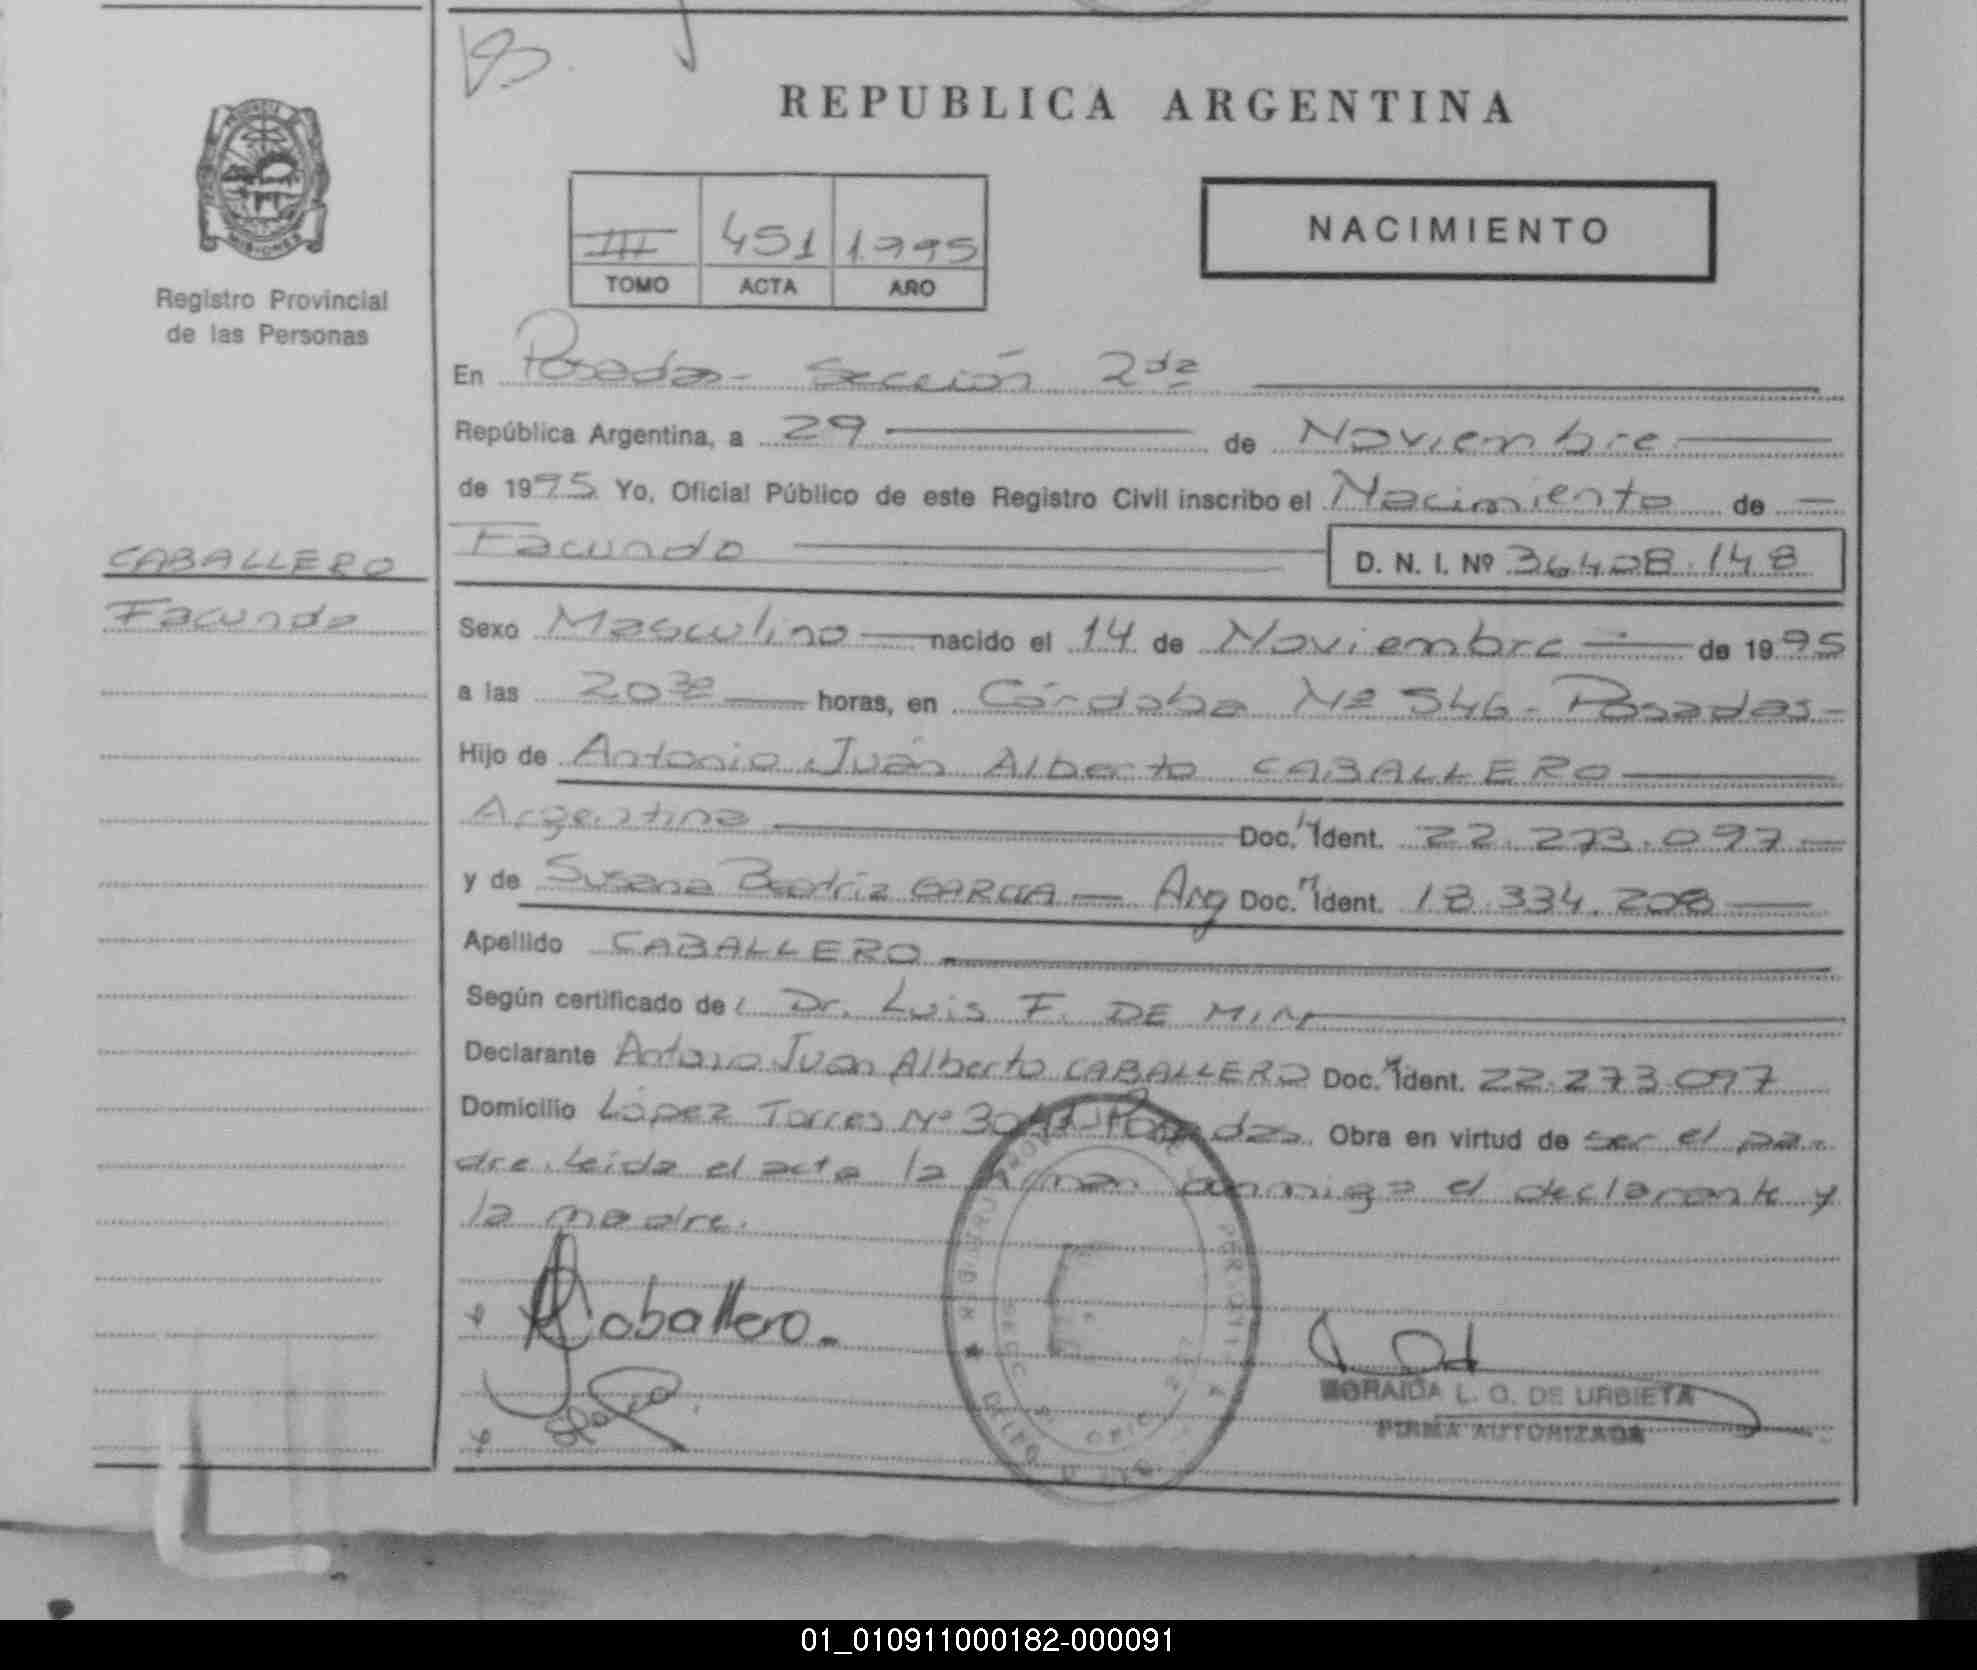 REPUBLICA ARGENTINA
MISIONES
Registro Provincial
de las Personas
III 451 1.995
TOMO ACTA AÑO
NACIMIENTO
En Posadas - Sección 2da
República Argentina, a 29 de Noviembre
de 1995 Yo, Oficial Público de este Registro Civil inscribo el Nacimiento de
CABALLERO
Facundo
Facundo D. N. I. Nº 36.408.148
Sexo Masculino nacido el 14 de Noviembre de 1995
a las 20 30 horas, en Córdoba Nº 546 - Posadas -
Hijo de Antonio Juán Alberto CABALLERO
Argentina Doc. Ident. 22.273.097
y de Susana Beatriz GARCIA - Arg Doc. Ident. 18.334.208
Apellido CABALLERO
Según certificado de: Dr. Luis F. DE MIN
Declarante Antonio Juan Alberto CABALLERO Doc. Ident. 22.273.097
Domicilio López Torres Nº Posadas. Obra en virtud de ser el pa-
dre. Leida el acta la firman conmigo el declarante y
la madre.
Caballero.
L. O. DE URBIETA
FIRMA AUTORIZADA
01_010911000182-000091